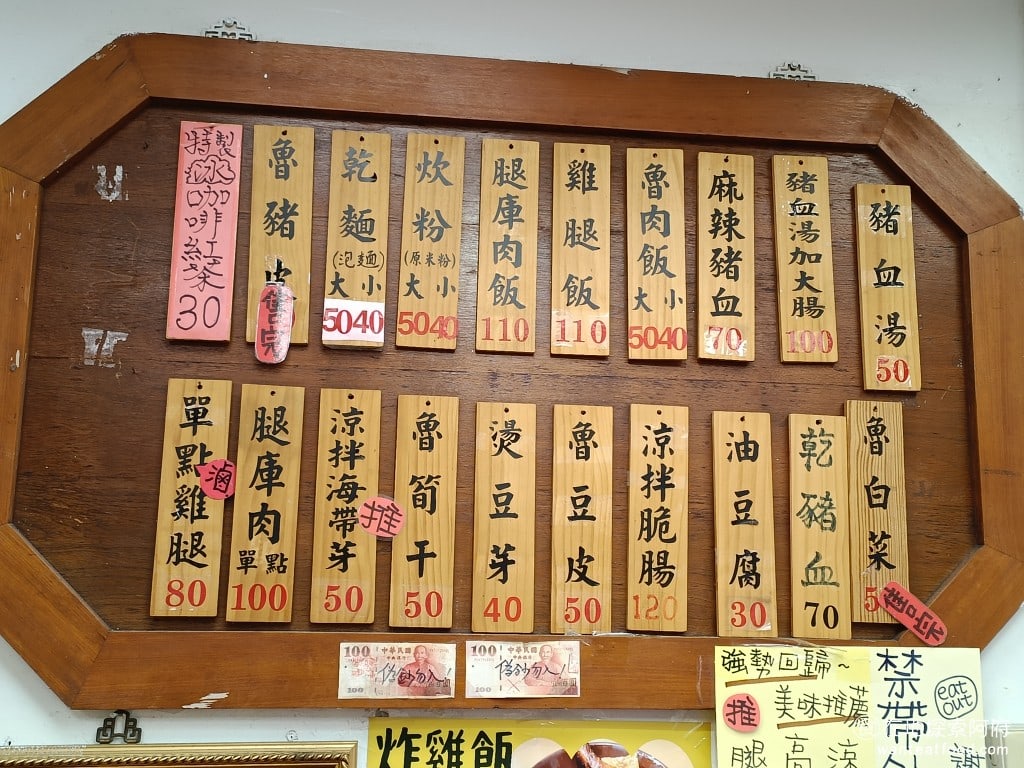 豬血湯
50
豬血湯加大腸
100
麻辣豬血
70
魯肉飯
大 小
5040
雞腿飯
110
腿庫肉飯
110
炊粉
(原米粉)
大 小
5040
乾麵
(泡麵)
大 小
5040
魯豬皮
售完
特製
冰咖啡紅茶
30
魯白菜
5
售完
乾豬血
70
油豆腐
30
涼拌脆腸
120
魯豆皮
50
燙豆芽
40
魯筍干
50
推
涼拌海帶芽
50
腿庫肉
單點
100
滷
單點雞腿
80
100 中華民國
100
偽鈔勿入!
100 中華民國
100
偽鈔勿入!
強勢回歸~
推 美味推薦
腿 高 涼
禁帶外
eat out
謝
炸雞飯
wanteatfong.com